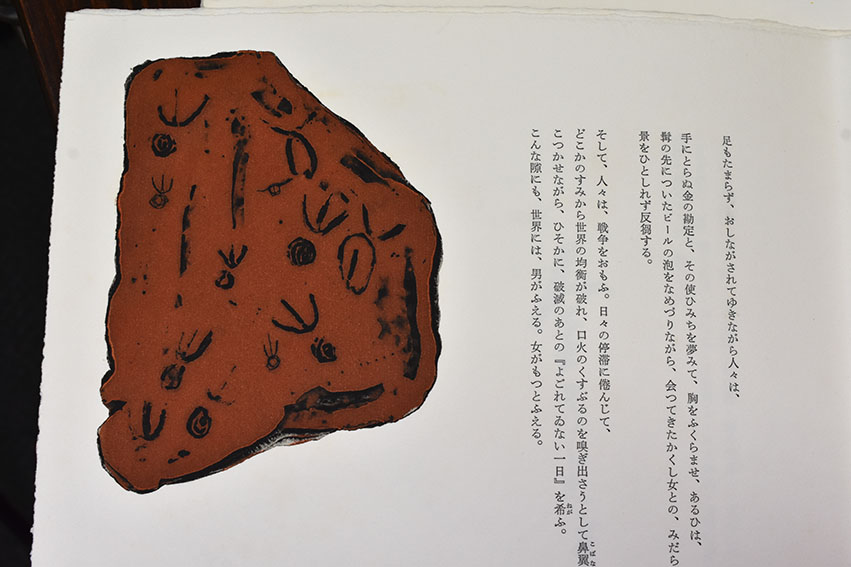 足もたまらず、おしながされてゆきながら人々は、
手にとらぬ金の勘定と、その使ひみちを夢みて、胸をふくらませ、あるひは、
髯の先についたビールの泡をなめづりながら、会つてきたかくし女との、みだら
景をひとしれず反芻する。
そして、人々は、戦争をおもふ。日々の停滞に倦んじて、
どこかのすみから世界の均衡が破れ、口火のくすぶるのを嗅ぎ出さうとして鼻翼こばな
こつかせながら、ひそかに、破滅のあとの『よごれてゐない一日』を希ねがふ。
こんな隙にも、世界には、男がふえる。女がもつとふえる。